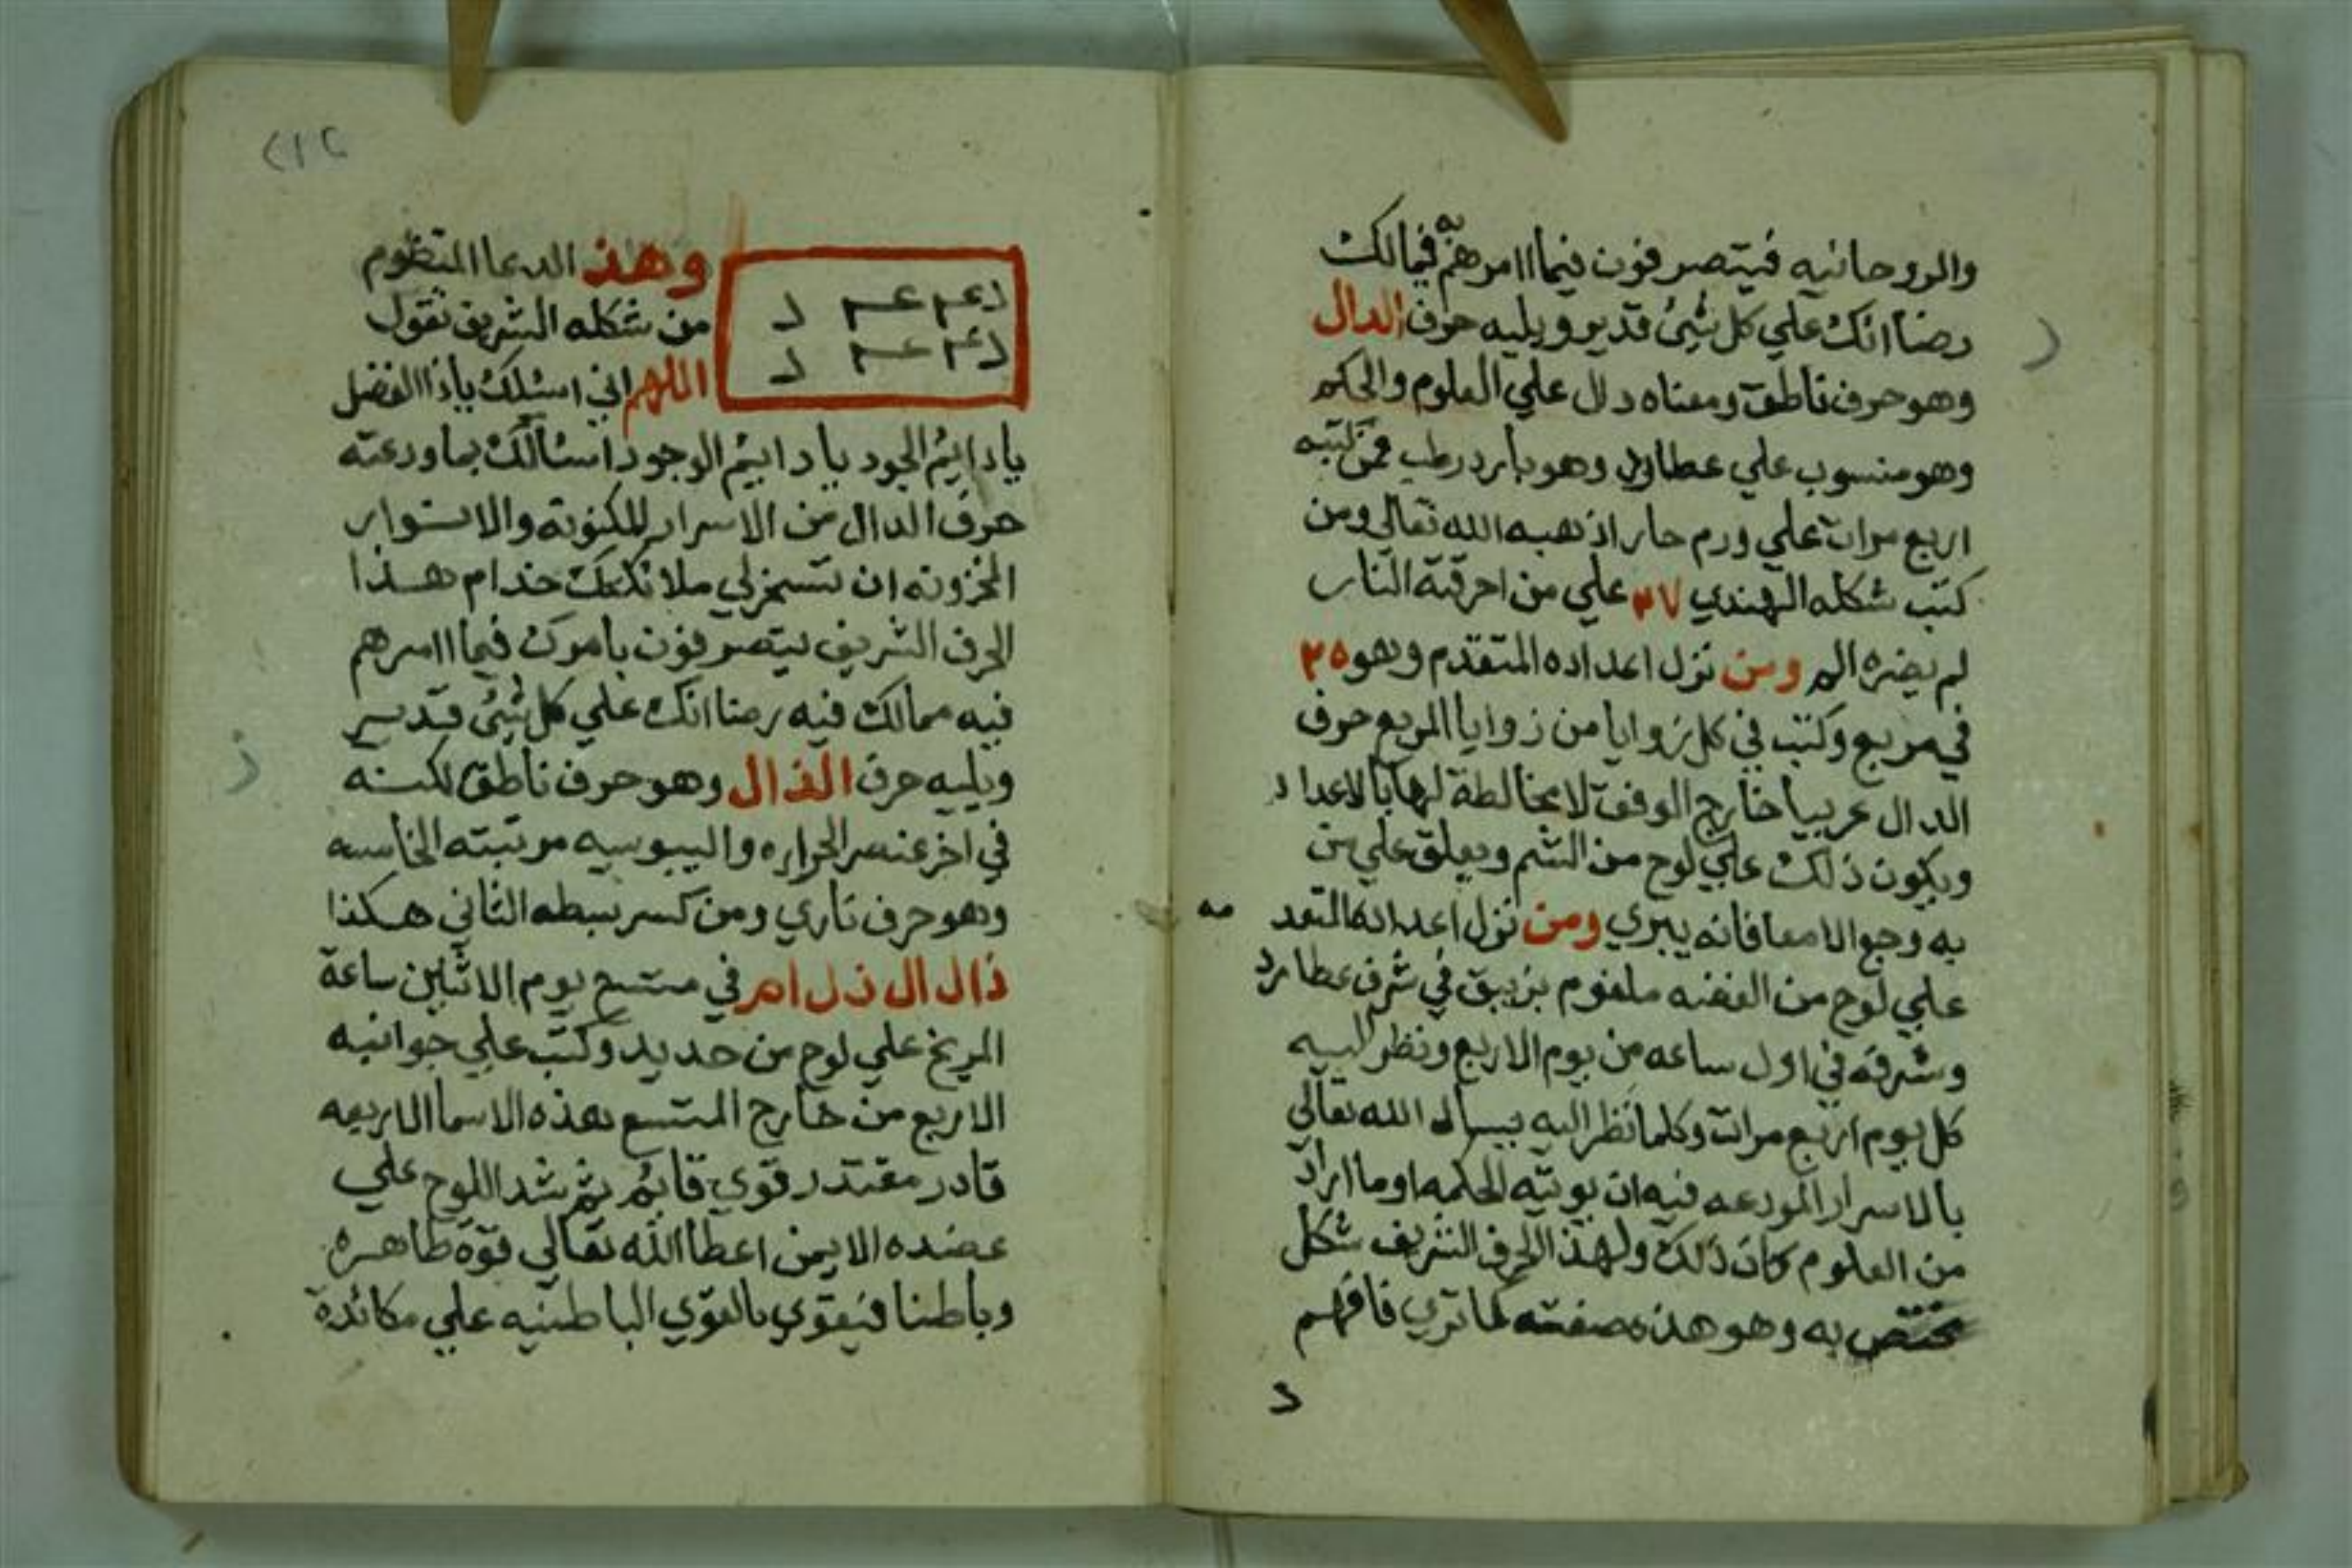 والروحانيه فيتصرفون فيما امرهم به فيما لك
رضا انك علي كل شيئ قدير ويليه حرف الدال
وهو حرف ناطق ومعناه دال علي العلوم والحكم
وهو منسوب علي عطارد وهو بارد رطب فمن كتبه
اربع مرات علي ورم حار اذهبه الله تعالي ومن
كتب شكله الهندي ٤٧ علي من احرقته النار
لم يضره الم ومن نزل اعداده المتقدم وهو ٣٥
في مربع وكتب في كل زوايا من زوايا المربع حرف
الدال عربيا خارج الوفق لا مخالطة لها بالاعداد
ويكون ذلك علي لوح من الشم ويعلق علي من
به وجع الامعا فانه يبري ومن نزل اعداده المتقد مه
علي لوح من الفضه ملغوم بزيبق في شرف عطارد
وشرفه في اول ساعه من يوم الاربع ونظر اليه
كل يوم اربع مرات وكلما نظر اليه يسال الله تعالي
بالاسرار المودعه فيه ان يوتيه الحكمه او ما اراد
من العلوم كان ذلك ولهذا الحرف الشريف شكل
مختص به وهو هذه صفته كما تري فافهم
د
٢١٢
دعم عم د
دعم عم د
وهذ الدعا المنظوم
من شكله الشريف تقول
اللهم اني اسئلك ياذا الفضل
يا دايم الجود يا دايم الوجود اسئالك بما ودعته
حرف الدال من الاسرار المكنونه والانوار
المخزونه ان تسخر لي ملائكتك خدام هذا
الحرف الشريف يتصرفون بامرك فيما امرهم
فيه مما لك فيه رضا انك علي كل شيئ قدير
ويليه حرف الذال وهو حرف ناطق لكنه
في اخر عنصر الحراره واليبوسيه مرتبته الخامسه
وهو حرف ناري ومن كسر بسطه الثاني هكذا
ذال ال ذل ام في متسع يوم الاثنين ساعة
المريخ علي لوح من حديد وكتب علي جوانبه
الاربع من خارج المتسع بهذه الاسما الاربعه
قادر مقتدر قوي قايم ثم شد اللوح علي
عضده الايمن اعطا الله تعالي قوة ظاهره
وباطنا فيقوي بالقوي الباطنيه علي مكائدة